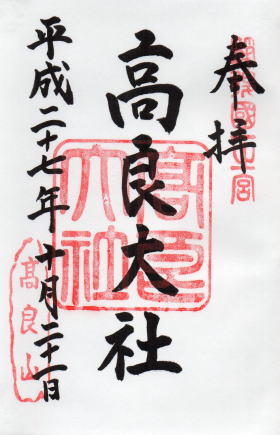 奉拝
筑後國一之宮
高良大社
髙良大社
平成二十七年十月二十一日
高良山